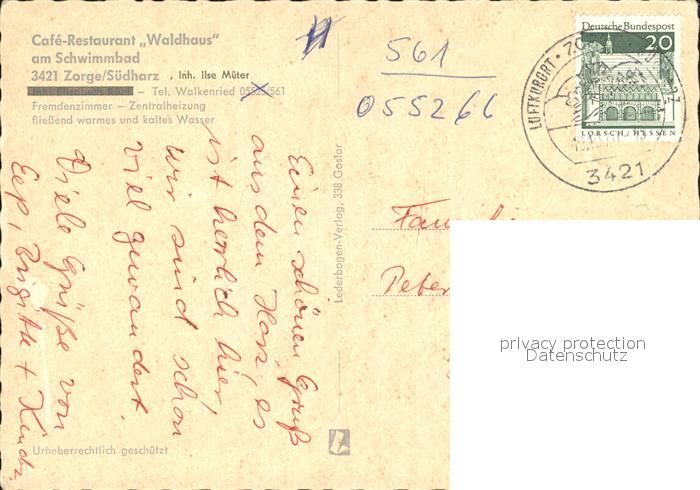 Café-Restaurant „Waldhaus"
am Schwimmbad
3421 Zorge/Südharz , Inh. Ilse Müter
– Tel. Walkenried 05525/561
Fremdenzimmer – Zentralheizung
fließend warmes und kaltes Wasser
561
055266
Deutsche Bundespost
20
LORSCH/HESSEN
LUFTKURORT
3421
Einen schönen Gruß
aus dem Harz, es
ist herrlich hier,
wir sind schon
viel gewandert.
Viele Grüße von
Eep, Brigitte + Kinder
Lederbogen-Verlag, 338 Goslar
Fam
Peter
privacy protection
Datenschutz
Urheberrechtlich geschützt